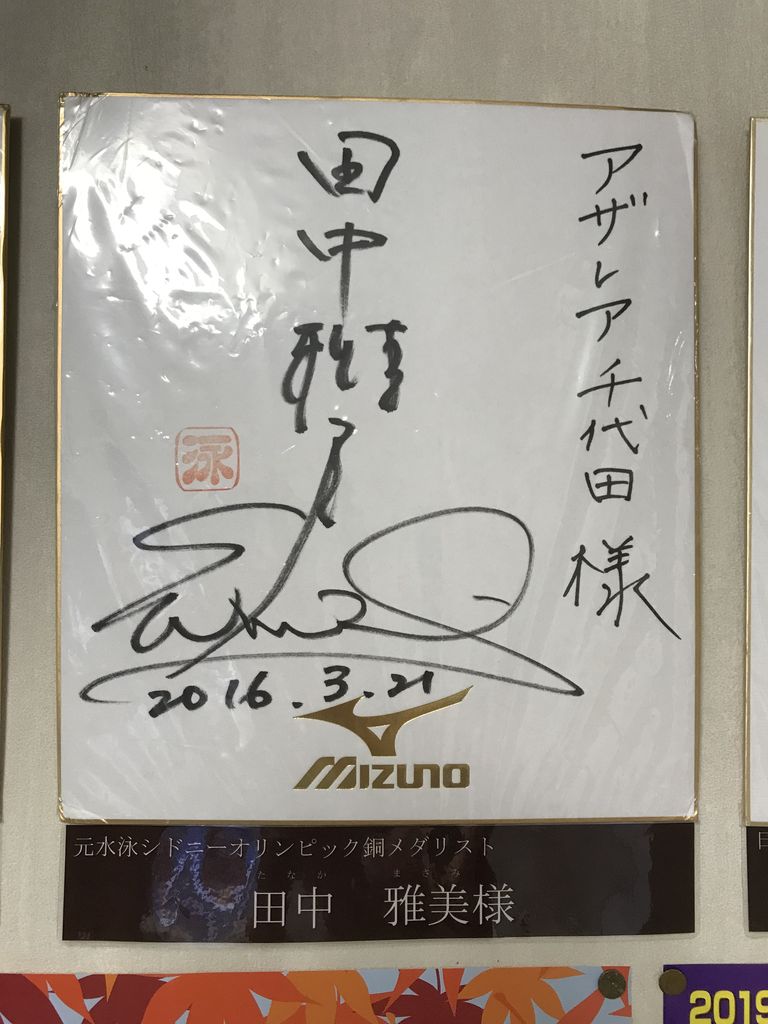 アザレア千代田様
田中雅美
泳
2016.3.21
MIZUNO
元水泳シドニーオリンピック銅メダリスト
たなか まさみ
田中 雅美様
2019